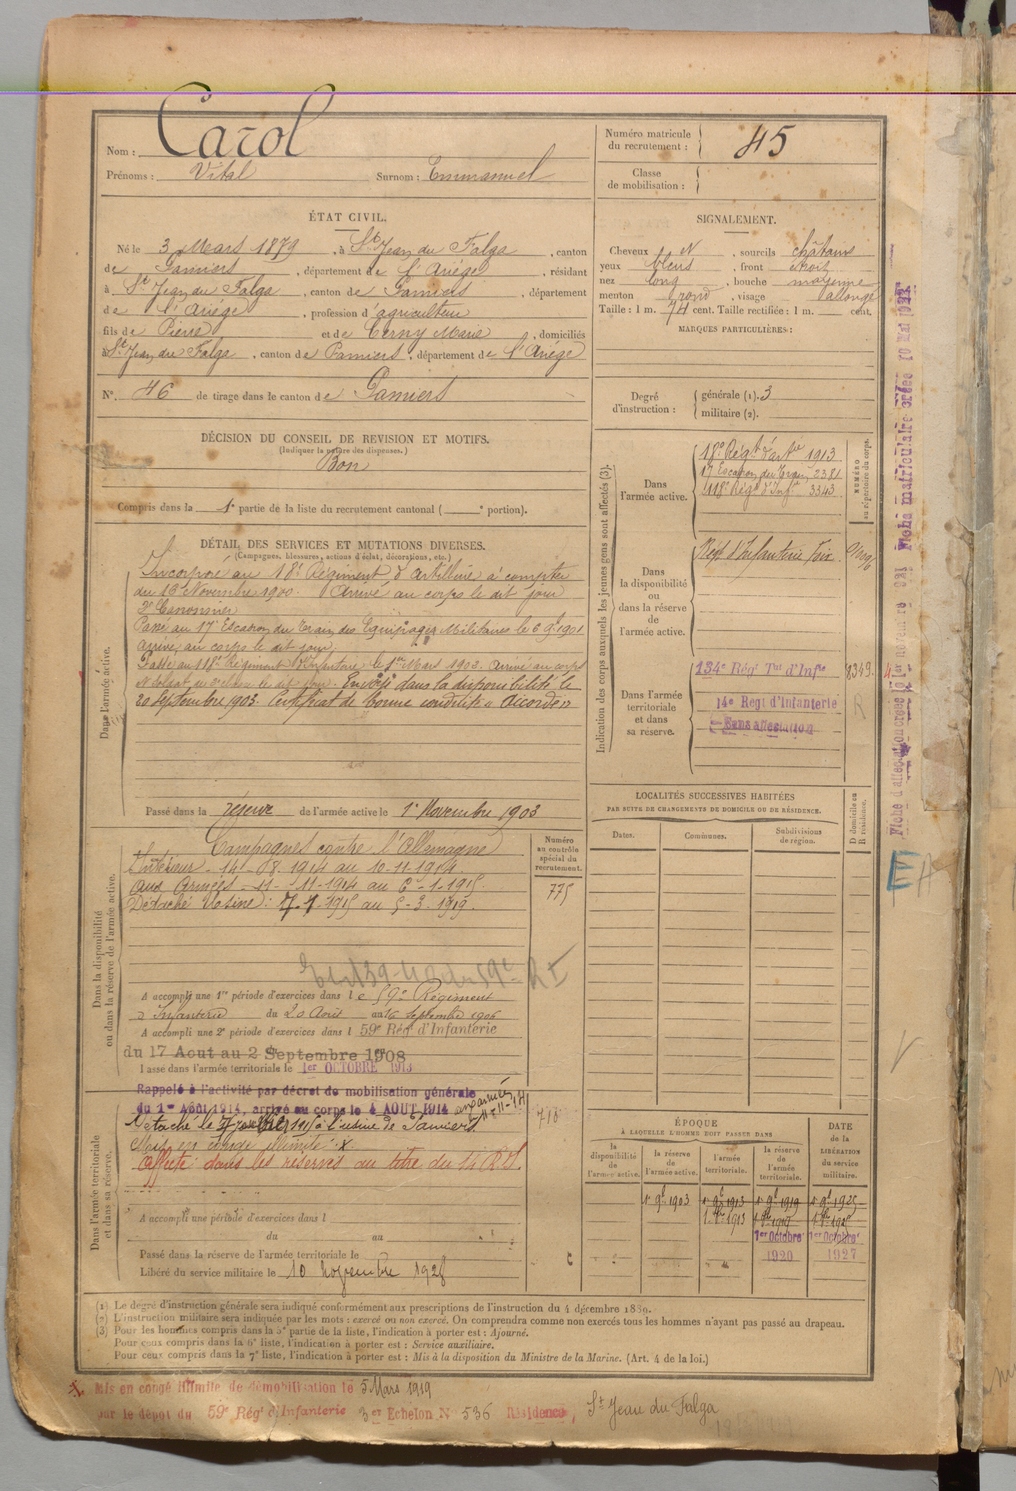 Nom : Carol
Prénoms : Vital Surnom : Emmanuel
Numéro matricule du recrutement : 45
Classe de mobilisation :
ÉTAT CIVIL.
Né le 3 Mars 1879, à St Jean du Falga, canton
de Pamiers, département de l'Ariège, résidant
à St Jean du Falga, canton de Pamiers, département
de l'Ariège, profession d'agriculteur
fils de Pierre et de Cerny Marie, domiciliés
à St Jean du Falga, canton de Pamiers, département de l'Ariège
N° 46 de tirage dans le canton de Pamiers
SIGNALEMENT.
Cheveux N, sourcils châtains
yeux bleus, front étroit
nez long, bouche moyenne
menton rond, visage allongé
Taille : 1 m. 74 cent. Taille rectifiée : 1 m. cent.
MARQUES PARTICULIÈRES :
Degré d'instruction : générale (1). 3
militaire (2).
DÉCISION DU CONSEIL DE REVISION ET MOTIFS.
(Indiquer la nature des dispenses.)
Bon
Compris dans la 1e partie de la liste du recrutement cantonal ( e portion).
DÉTAIL DES SERVICES ET MUTATIONS DIVERSES.
(Campagnes, blessures, actions d'éclat, décorations, etc.)
Dans l'armée active.
Incorporé au 18e Régiment d'artillerie à compter
du 13 Novembre 1900. Arrivé au corps le dit jour
2e Canonnier
Passé au 17e Escadron du Train des Equipages Militaires le 6 9bre 1901
arrivé au corps le dit jour
Passé au 118e Régiment d'Infanterie le 1er Mars 1903. Arrivé au corps
et soldat de 2e classe le dit jour. Envoyé dans la disponibilité le
20 Septembre 1903. Certificat de bonne conduite "Accordé"
Passé dans la réserve de l'armée active le 1er Novembre 1903
Indication des corps auxquels les jeunes gens sont affectés (3).
NUMÉRO au répertoire du corps.
Dans l'armée active.
18e Régt d'artie 1913
17 Escadron du Train 2381
118e Régt d'Infie 3343
Dans la disponibilité ou dans la réserve de l'armée active.
Régt d'Infanterie Foix
Dans l'armée territoriale et dans sa réserve.
134e Régt Tal d'Infie 8349
14e Régt d'Infanterie
Sans affectation
Dans la disponibilité ou dans la réserve de l'armée active.
Campagnes contre l'Allemagne
Intérieur - 14-08-1914 au 10-11-1914
aux Armées - 11-11-1914 au 6-1-1915
Détaché Usine : 7-1-1915 au 5-3-1919.
Numéro au contrôle spécial du recrutement.
775
A accompli une 1re période d'exercices dans le 59e Régiment
d'Infanterie du 20 Août au 16 Septembre 1906
A accompli une 2e période d'exercices dans le 59e Régt d'Infanterie
du 17 Aout au 2 Septembre 1908
Passé dans l'armée territoriale le 1er OCTOBRE 1913
LOCALITÉS SUCCESSIVES HABITÉES
PAR SUITE DE CHANGEMENTS DE DOMICILE OU DE RÉSIDENCE.
Dates. Communes. Subdivisions de région. D domicile ou R résidence.
Dans l'armée territoriale et dans sa réserve.
Rappelé à l'activité par décret de mobilisation générale
du 1er Août 1914, arrivé au corps le 4 AOUT 1914 aux armées
le 11-11-14
Détaché le 7 janvier 1915 à l'usine de Pamiers.
Mis en congé illimité X
Affecté dans les réserves au titre du 14 R.I.
A accompli une période d'exercices dans l
du au
Passé dans la réserve de l'armée territoriale le
Libéré du service militaire le 10 novembre 1928
ÉPOQUE
À LAQUELLE L'HOMME DOIT PASSER DANS
la disponibilité de l'armée active. la réserve de l'armée active. l'armée territoriale. la réserve de l'armée territoriale. DATE de la LIBÉRATION du service militaire.
1er 9bre 1903 1er 9bre 1913 1er 9bre 1919 1er 9bre 1925
1er Octobre 1er Octobre
1920 1927
(1) Le degré d'instruction générale sera indiqué conformément aux prescriptions de l'instruction du 4 décembre 1889.
(2) L'instruction militaire sera indiquée par les mots : exercé ou non exercé. On comprendra comme non exercés tous les hommes n'ayant pas passé au drapeau.
(3) Pour les hommes compris dans la 5e partie de la liste, l'indication à porter est : Ajourné.
Pour ceux compris dans la 6e liste, l'indication à porter est : Service auxiliaire.
Pour ceux compris dans la 7e liste, l'indication à porter est : Mis à la disposition du Ministre de la Marine. (Art. 4 de la loi.)
X Mis en congé illimité de démobilisation le 5 Mars 1919
par le dépôt du 59e Régt d'Infanterie 3er Echelon N° 536 Résidence, St Jean du Falga
Fiche matriculaire créée 10 Mai